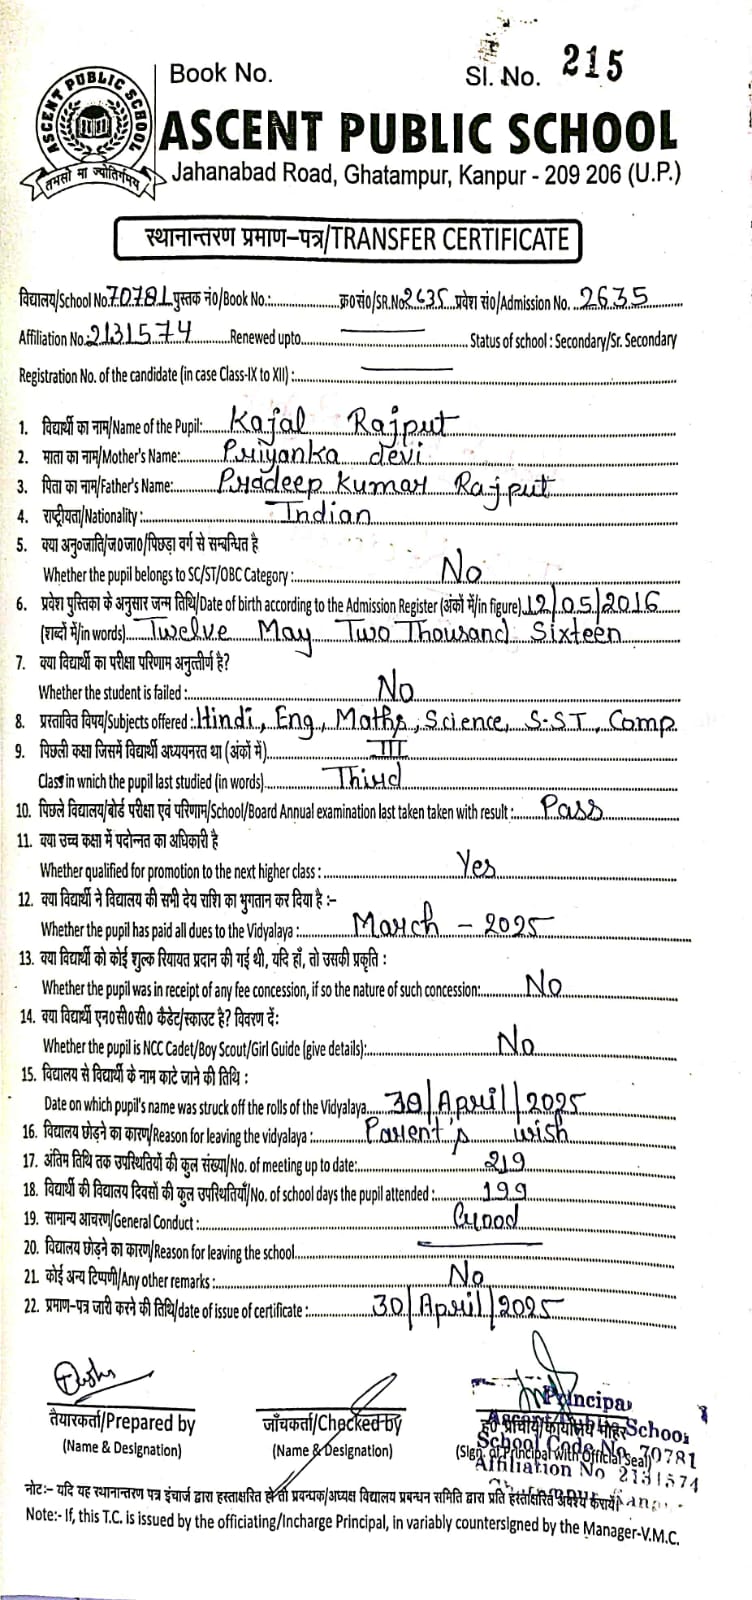 Book No.
Sl. No. 215
ASCENT PUBLIC SCHOOL
तमसो मा ज्योतिर्गमय
ASCENT PUBLIC SCHOOL
Jahanabad Road, Ghatampur, Kanpur - 209 206 (U.P.)
स्थानान्तरण प्रमाण-पत्र/TRANSFER CERTIFICATE
विद्यालय/School No. 70781 पुस्तक नं०/Book No.: क्र०सं०/SR.No. 2635 प्रवेश सं०/Admission No. 2635
Affiliation No. 2131574 Renewed upto Status of school : Secondary/Sr. Secondary
Registration No. of the candidate (in case Class-IX to XII) :
1. विद्यार्थी का नाम/Name of the Pupil: Kajal Rajput
2. माता का नाम/Mother's Name: Priyanka devi
3. पिता का नाम/Father's Name: Pradeep Kumar Rajput
4. राष्ट्रीयता/Nationality : Indian
5. क्या अनु०जाति/ज०जा०/पिछड़ा वर्ग से सम्बन्धित है
Whether the pupil belongs to SC/ST/OBC Category : No
6. प्रवेश पुस्तिका के अनुसार जन्म तिथि/Date of birth according to the Admission Register (अंकों में/in figure) 12/05/2016
(शब्दों में/in words) Twelve May Two Thousand Sixteen
7. क्या विद्यार्थी का परीक्षा परिणाम अनुत्तीर्ण है?
Whether the student is failed : No
8. प्रस्तावित विषय/Subjects offered : Hindi, Eng, Maths, Science, S.ST, Comp
9. पिछली कक्षा जिसमें विद्यार्थी अध्ययनरत था (अंकों में) III
Class in wnich the pupil last studied (in words) Third
10. पिछले विद्यालय/बोर्ड परीक्षा एवं परिणाम/School/Board Annual examination last taken taken with result : Pass
11. क्या उच्च कक्षा में पदोन्नत का अधिकारी है
Whether qualified for promotion to the next higher class : Yes
12. क्या विद्यार्थी ने विद्यालय की सभी देय राशि का भुगतान कर दिया है :-
Whether the pupil has paid all dues to the Vidyalaya : March - 2025
13. क्या विद्यार्थी को कोई शुल्क रियायत प्रदान की गई थी, यदि हाँ, तो उसकी प्रकृति :
Whether the pupil was in receipt of any fee concession, if so the nature of such concession: No
14. क्या विद्यार्थी एन०सी०सी० कैडेट/स्काउट है? विवरण दें:
Whether the pupil is NCC Cadet/Boy Scout/Girl Guide (give details): No
15. विद्यालय से विद्यार्थी के नाम काटे जाने की तिथि :
Date on which pupil's name was struck off the rolls of the Vidyalaya 30/April/2025
16. विद्यालय छोड़ने का कारण/Reason for leaving the vidyalaya : Parent's wish
17. अंतिम तिथि तक उपस्थितियों की कुल संख्या/No. of meeting up to date: 219
18. विद्यार्थी की विद्यालय दिवसों की कुल उपस्थितियाँ/No. of school days the pupil attended : 199
19. सामान्य आचरण/General Conduct : Good
20. विद्यालय छोड़ने का कारण/Reason for leaving the school
21. कोई अन्य टिप्पणी/Any other remarks : No
22. प्रमाण-पत्र जारी करने की तिथि/date of issue of certificate : 30/April/2025
तैयारकर्ता/Prepared by
(Name & Designation)
जाँचकर्ता/Checked by
(Name & Designation)
Principal
Ascent Public School
School Code No. 70781
Affiliation No 2131574
(Sign. of Principal with Official Seal)
नोट:- यदि यह स्थानान्तरण पत्र इंचार्ज द्वारा हस्ताक्षरित हो तो प्रबन्धक/अध्यक्ष विद्यालय प्रबन्धन समिति द्वारा प्रति हस्ताक्षरित अवश्य करायें
Note:- If, this T.C. is issued by the officiating/Incharge Principal, in variably countersigned by the Manager-V.M.C.